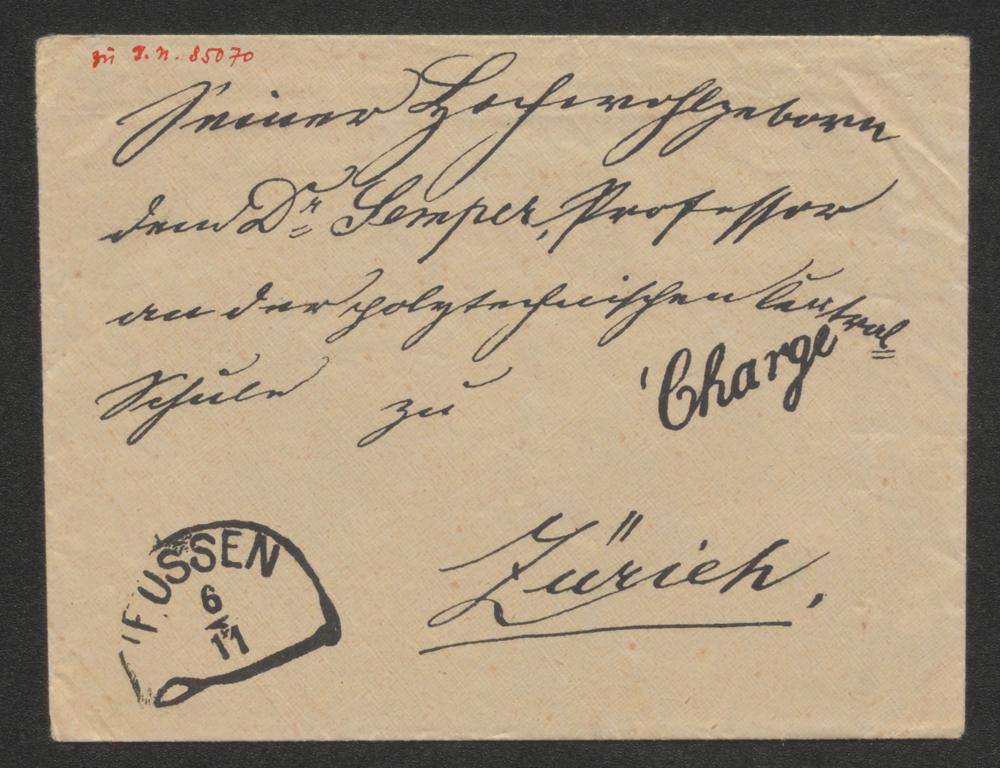 zu I. N. 85070
Seiner Hochwohlgeborn
dem Dr Semper, Professor
an der polytechnischen Central
Schule zu
Chargé
FUSSEN
6
11
Zürich,